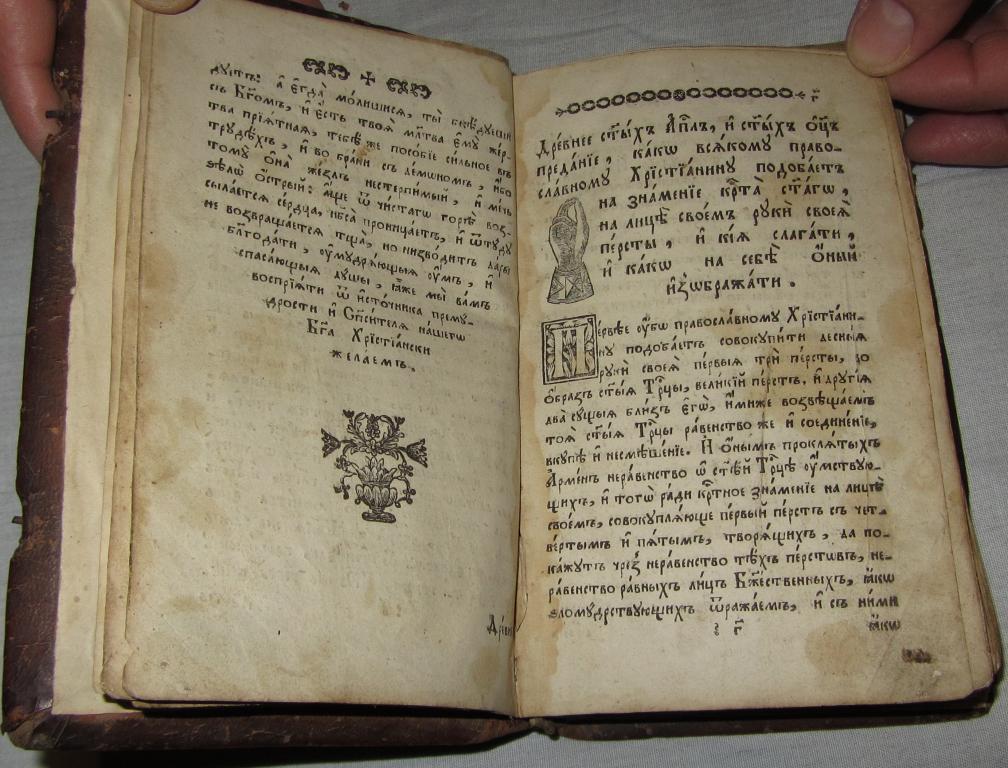 дуютъ: а҆ є҆гда̀ мо́лишися, ты̀ бесѣ́дуеши
съ Бг҃омъ, и҆ є҆сть твоя̀ мл҃тва є҆мꙋ̀ же́р-
тва прїѧ́тная, тебѣ́ же посо́бїе си́льное въ
трудѣ́хъ, и҆ во бра́ни съ де́мѡномъ, и҆́бо
томꙋ̀ ѻ҆на̀ же́злъ нестерпи́мый, и҆ ме́чь
ѕѣлѡ̀ ѻ҆́стрый: а҆́ще ѿ чи́стагѡ горѣ̀ воз-
сыла́ется се́рдца, нб҃са̀ проница́етъ, и҆ ѿтꙋ́дꙋ
не возвраща́ется тща̀, но низво́дитъ да́ры
бл҃года́ти, ᲂу҆мꙋдрѧ́ющыя ᲂу҆́мъ, и҆
спаса́ющыя дꙋ́шы, ꙗ҆̀же мы̀ ва́мъ
воспрїѧ́ти ѿ и҆сто́чника премꙋ́-
дрости и҆ Сп҃си́теля на́шегѡ
Бг҃а Хрїстїа́нски
жела́емъ.
Дре́вн
г҃
Дре́внее ст҃ы́хъ А҆пл҃ъ, и҆ ст҃ы́хъ ѻ҆ц҃ъ
преда́нїе, ка́кѡ всѧ́комꙋ право-
сла́вномꙋ Хрїстїа́нинꙋ подоба́етъ
на зна́менїе кр҃та̀ ст҃а́гѡ,
на лицѣ̀ свое́мъ рꙋкѝ своея̀
пе́рсты, и҆ кі́я слага́ти,
и҆ ка́кѡ на себѣ̀ ѻ҆́ный
и҆зѡбража́ти.
Пе́рвѣе ᲂу҆́бѡ правосла́вномꙋ Хрїстїа́ни-
нꙋ подоба́етъ совокупи́ти десны́я
рꙋкѝ своея̀ пе́рвыя трѝ пе́рсты, во
ѻ҆́бразъ ст҃ы́я Тр҃цы, вели́кїй пе́рстъ, и҆ дрꙋгі́я
два̀ сꙋ́щыя бли́зъ є҆гѡ̀, и҆́миже возвѣща́емъ
тоя̀ ст҃ы́я Тр҃цы ра́венство же и҆ соедине́нїе,
вкꙋ́пѣ и҆ несмѣше́нїе. И҆ ѻ҆́нымъ проклѧ́тыхъ
А҆рме́нъ нера́венство ѡ҆ ст҃ѣ́й Тр҃цѣ ᲂу҆́мствꙋю-
щихъ, и҆ тогѡ̀ ра́ди кр҃тное зна́менїе на лицѣ̀
свое́мъ, совокупля́юще пе́рвый пе́рстъ съ чет-
ве́ртымъ и҆ пѧ́тымъ, творѧ́щихъ, да по-
ка́жꙋтъ чре́з̾ нера́венство тѣ́хъ пе́рстѡвъ, не-
ра́венство ра́вныхъ ли́цъ Бж҃е́ственныхъ, ꙗ҆́кѡ
ѕломꙋ́дрствꙋющихъ ѿража́емъ, и҆ съ ни́ми
г҃
ꙗ҆́кѡ